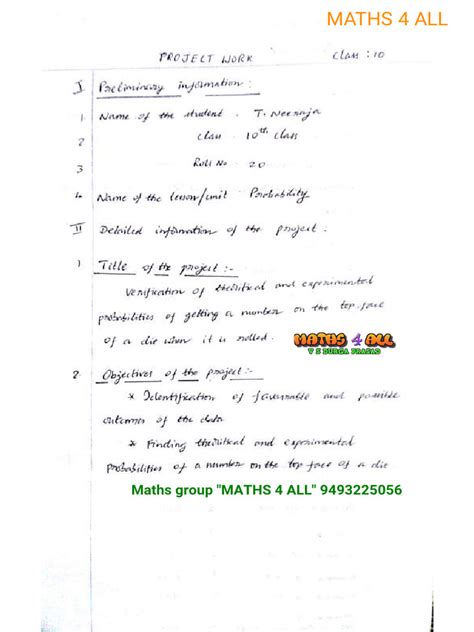 MATHS 4 ALL
PROJECT WORK
Class : 10
I Preliminary information :
1 Name of the student : T. Neeraja
2 Class : 10th class
3 Roll No : 20
4 Name of the lesson/unit : Probability
II Detailed information of the project :
1) Title of the project :-
Verification of theoritical and experimental
probabilities of getting a number on the top face
of a die when it is rolled.
MATHS 4 ALL
Y S DURGA PRASAD
2. Objectives of the project :-
* Identification of favourable and possible
outcomes of the data
* Finding theoritical and experimental
Probabilities of a number on the top face of a die
Maths group "MATHS 4 ALL" 9493225056